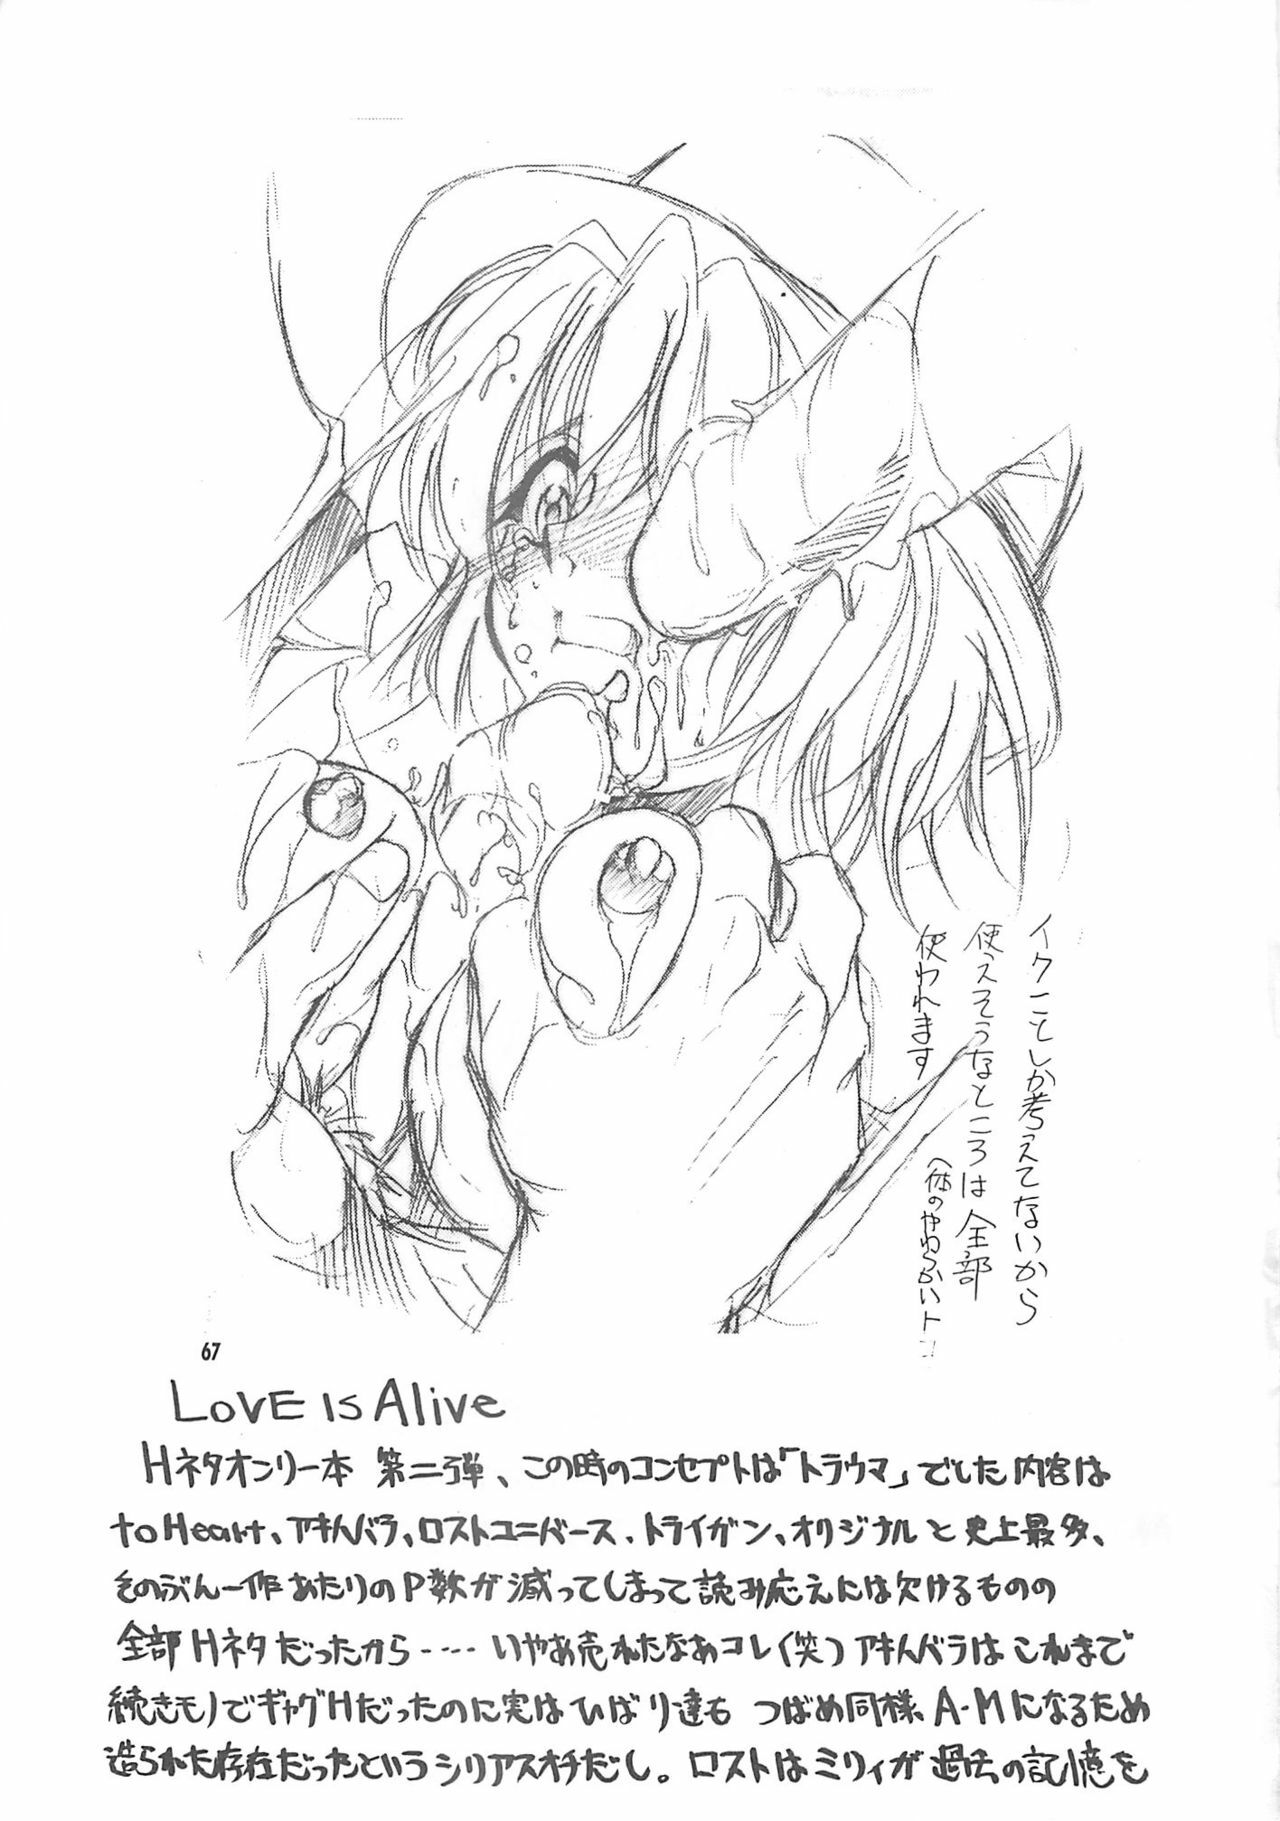 イクことしか考えてないから
使えそうなところは全部
使われます
67
LOVE IS Alive
Hネタオンリー本 第二弾、この時のコンセプトは「トラウマ」でした内容は
to Heart、アキハバラ、ロストユニバース、トライガン、オリジナルと史上最多、
そのぶん一作あたりのP数が減ってしまって読み応えには欠けるものの
全部Hネタだったから‥‥いやあ売れたなあコレ(笑)アキハバラはこれまで
続きモノでギャグHだったのに実はひばり達も つばめ同様、A-Mになるため
造られた存在だったというシリアスオチだし。ロストはミリィが過去の記憶を